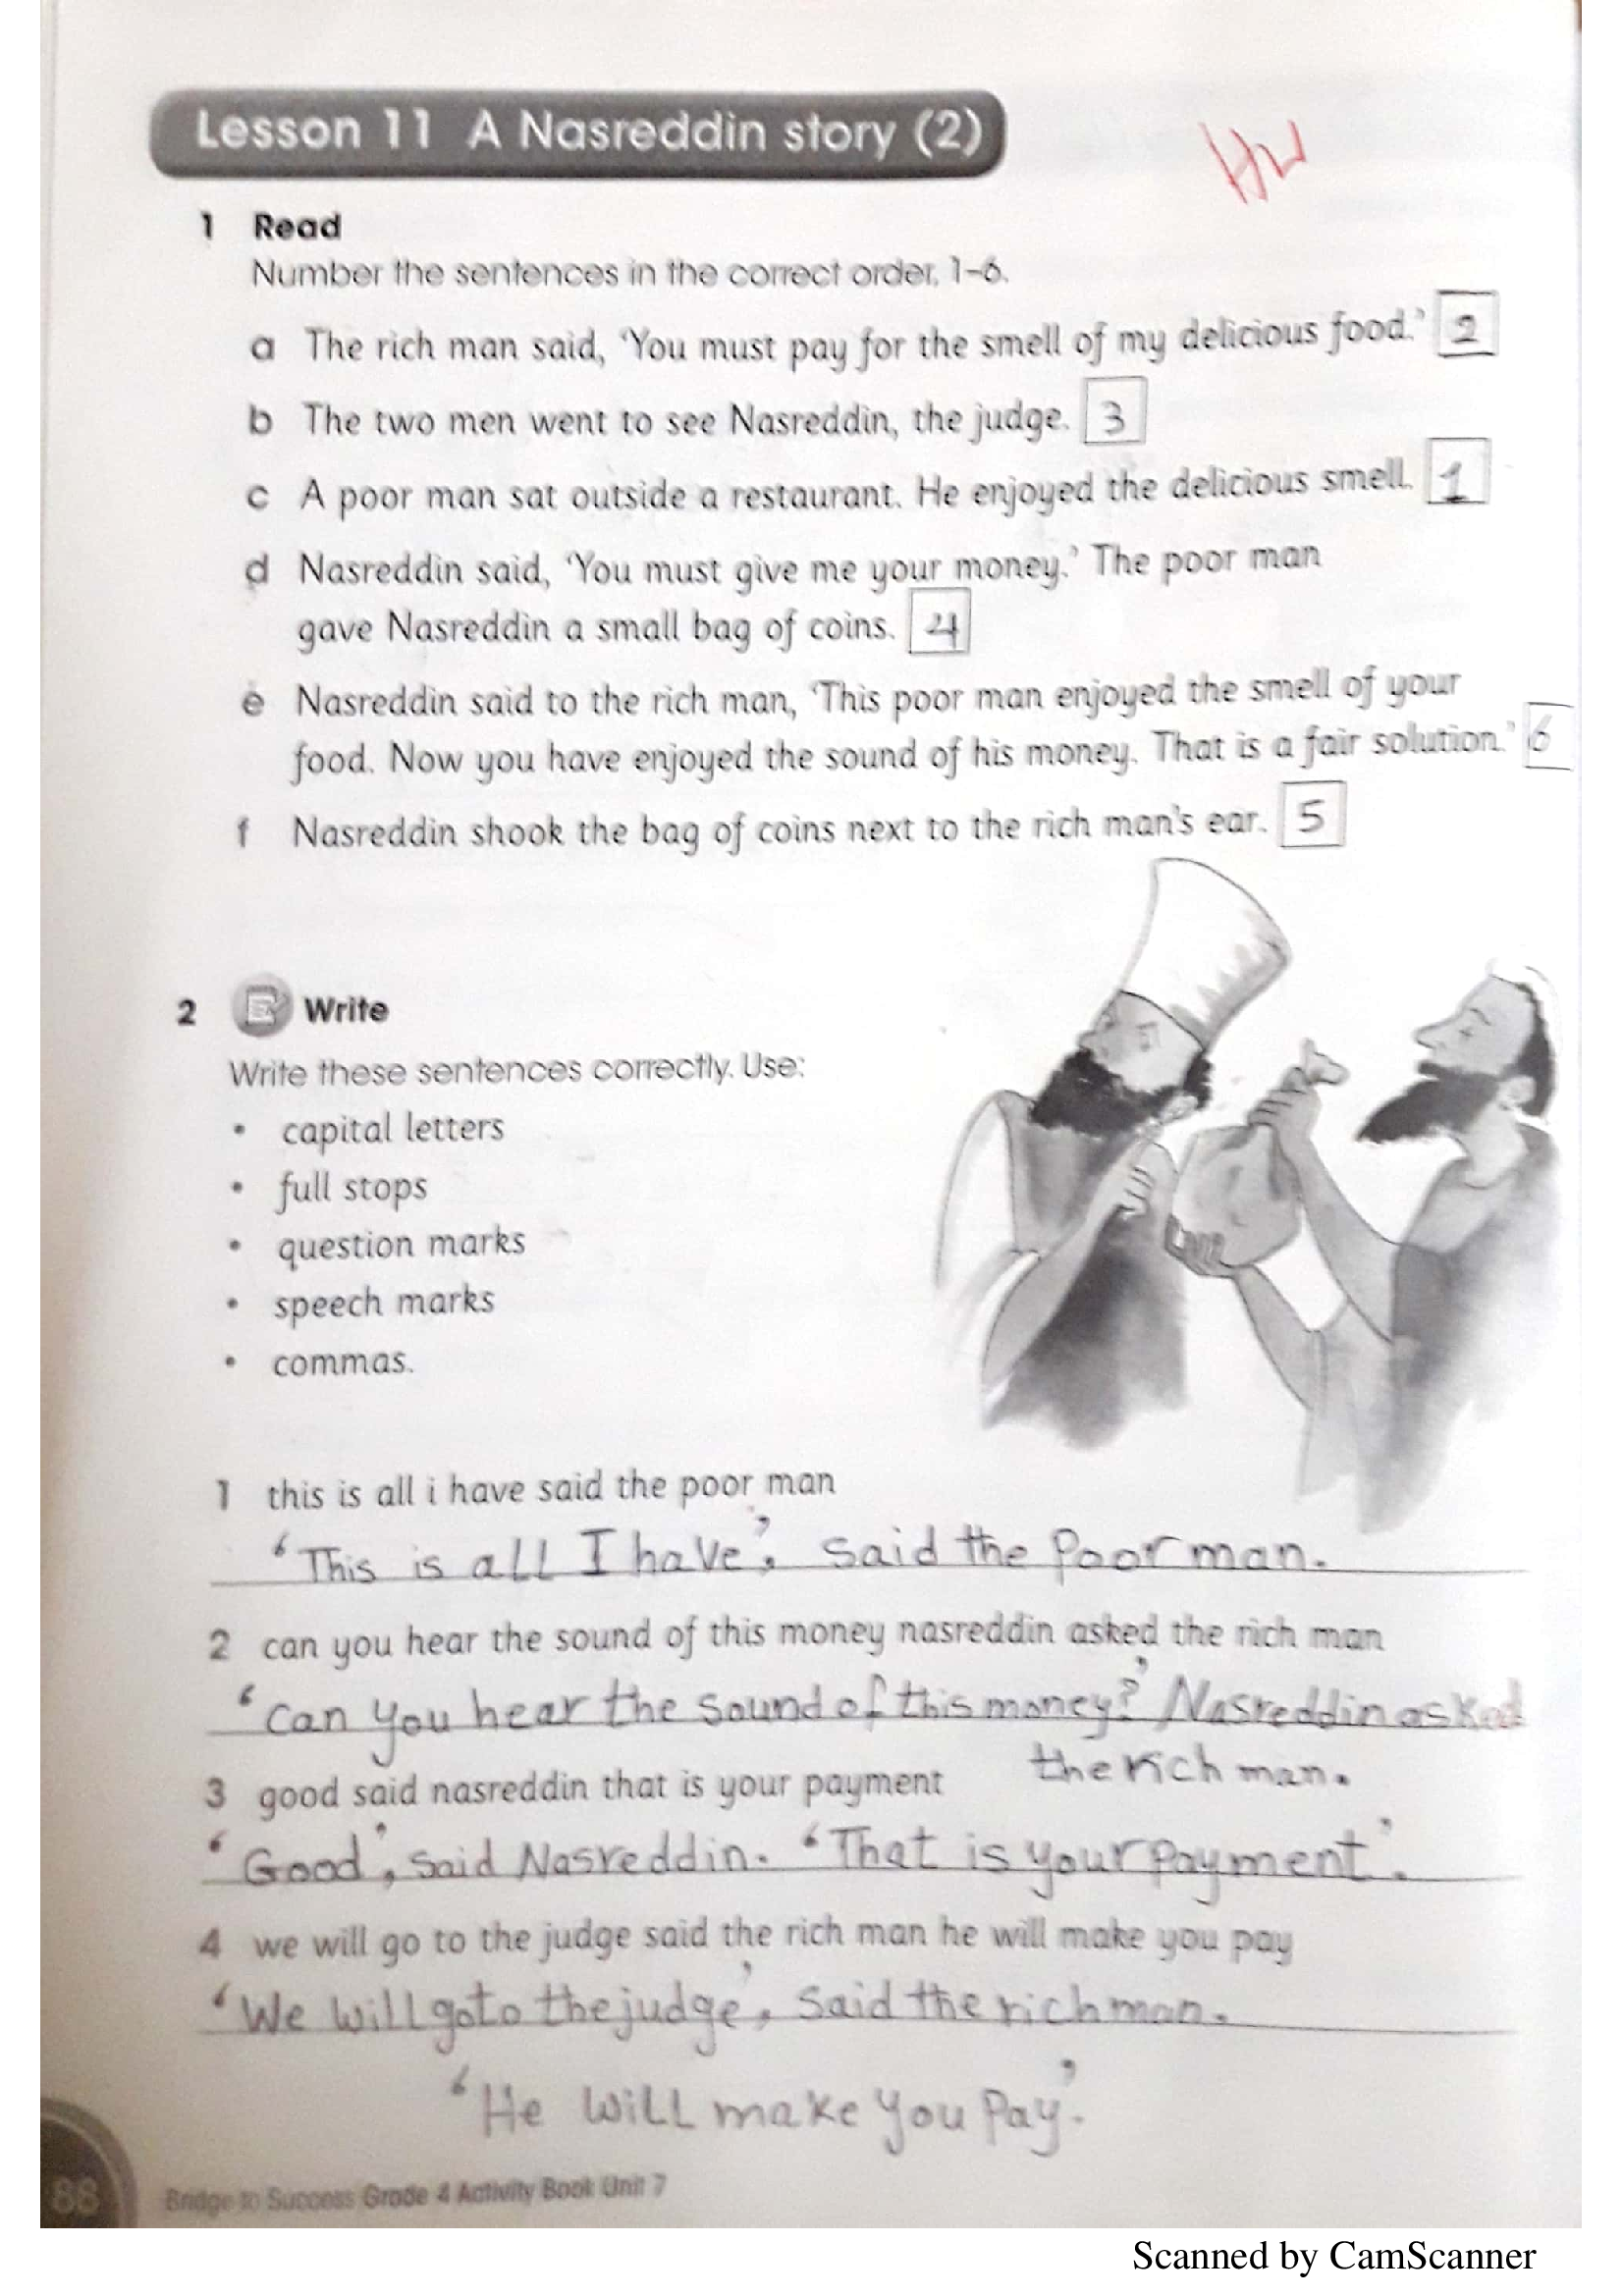 Lesson 11 A Nasreddin story (2)
HW
1 Read
Number the sentences in the correct order, 1–6.
a The rich man said, ‘You must pay for the smell of my delicious food.’ 2
b The two men went to see Nasreddin, the judge. 3
c A poor man sat outside a restaurant. He enjoyed the delicious smell. 1
d Nasreddin said, ‘You must give me your money.’ The poor man
gave Nasreddin a small bag of coins. 4
e Nasreddin said to the rich man, ‘This poor man enjoyed the smell of your
food. Now you have enjoyed the sound of his money. That is a fair solution.’ 6
f Nasreddin shook the bag of coins next to the rich man's ear. 5
2 Write
Write these sentences correctly. Use:
• capital letters
• full stops
• question marks
• speech marks
• commas.
1 this is all i have said the poor man
‘This is all I have’, said the Poor man.
2 can you hear the sound of this money nasreddin asked the rich man
‘Can you hear the sound of this money?’ Nasreddin asked
the rich man.
3 good said nasreddin that is your payment
‘Good’, said Nasreddin. ‘That is your payment’.
4 we will go to the judge said the rich man he will make you pay
‘We will go to the judge’, said the rich man.
‘He will make you Pay’.
88 Bridge to Success Grade 4 Activity Book Unit 7
Scanned by CamScanner